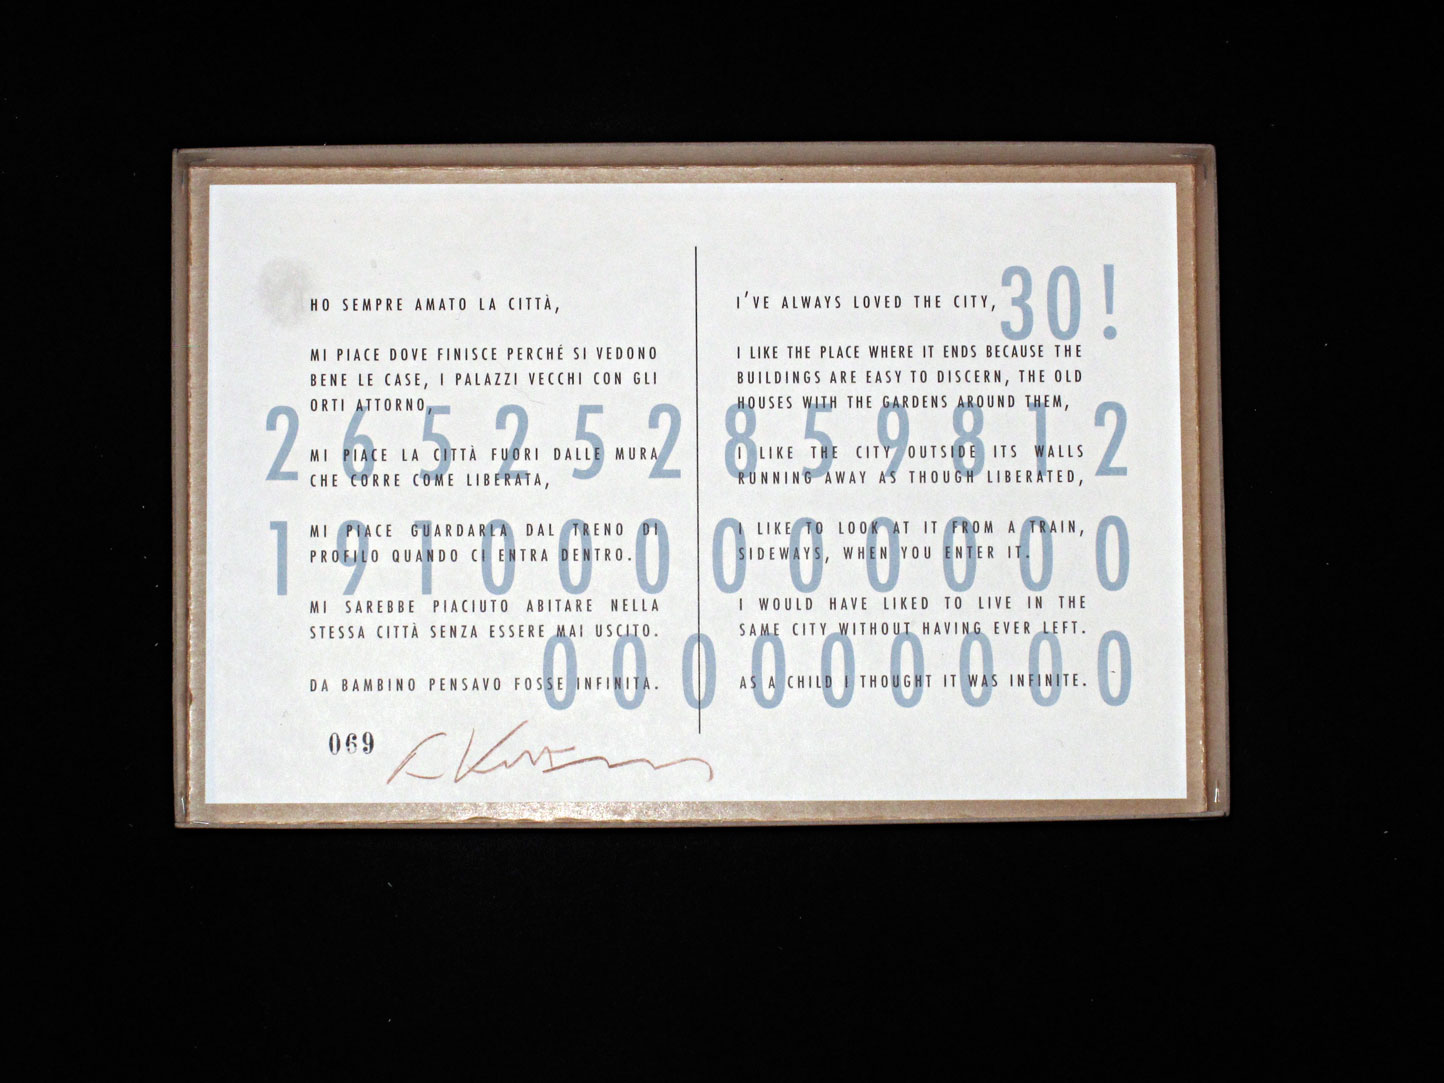 HO SEMPRE AMATO LA CITTÀ,
MI PIACE DOVE FINISCE PERCHÉ SI VEDONO
BENE LE CASE, I PALAZZI VECCHI CON GLI
ORTI ATTORNO,
MI PIACE LA CITTÀ FUORI DALLE MURA
CHE CORRE COME LIBERATA,
MI PIACE GUARDARLA DAL TRENO DI
PROFILO QUANDO CI ENTRA DENTRO.
MI SAREBBE PIACIUTO ABITARE NELLA
STESSA CITTÀ SENZA ESSERE MAI USCITO.
DA BAMBINO PENSAVO FOSSE INFINITA.
I'VE ALWAYS LOVED THE CITY,
I LIKE THE PLACE WHERE IT ENDS BECAUSE THE
BUILDINGS ARE EASY TO DISCERN, THE OLD
HOUSES WITH THE GARDENS AROUND THEM,
I LIKE THE CITY OUTSIDE ITS WALLS
RUNNING AWAY AS THOUGH LIBERATED,
I LIKE TO LOOK AT IT FROM A TRAIN,
SIDEWAYS, WHEN YOU ENTER IT.
I WOULD HAVE LIKED TO LIVE IN THE
SAME CITY WITHOUT HAVING EVER LEFT.
AS A CHILD I THOUGHT IT WAS INFINITE.
30!
265252859812
191000000000
000000000
069